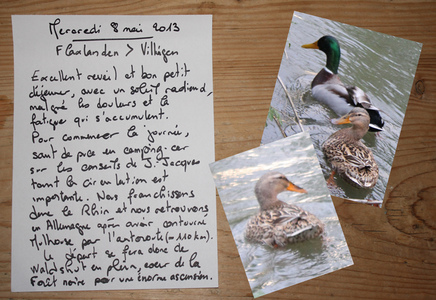 Mercredi 8 mai 2013
Flaxlanden > Villigen
Excellent réveil et bon petit
déjeuner, avec un soleil radieux,
malgré les douleurs et la
fatigue qui s'accumulent.
Pour commencer la journée,
saut de puce en camping-car
sur les conseils de J. Jacques
tant la circulation est
importante. Nous franchissons
donc le Rhin et nous retrouvons
en Allemagne après avoir contourné
Mulhouse par l'autoroute (≈ 110 km).
Le départ se fera donc de
Waldshut en plein coeur de la
Forêt noire pour une énorme ascension.